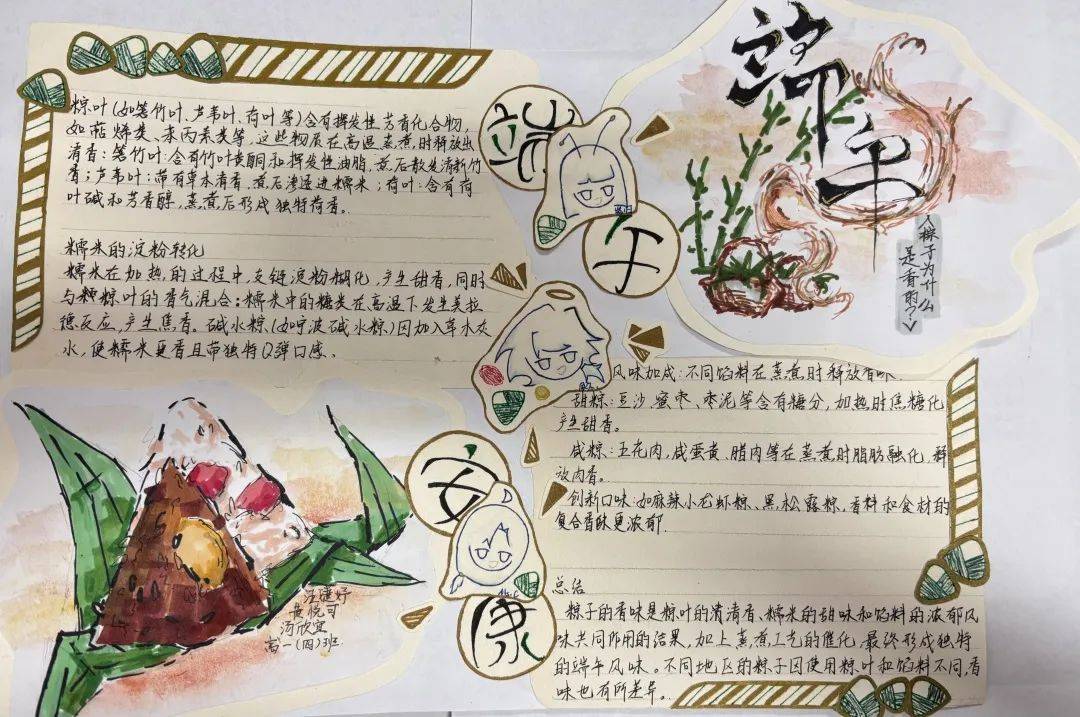 粽叶(如箬竹叶、芦苇叶、荷叶等)含有挥发性芳香化合物,
如萜烯类、苯丙素类等,这些物质在高温蒸煮时释放出
清香:箬竹叶:含有竹叶黄酮和挥发性油脂,煮后散发清新竹
香;芦苇叶:带有草本清香,煮后渗透进糯米;荷叶:含有荷
叶碱和芳香醇,蒸煮后形成独特荷香。
糯米的淀粉转化
糯米在加热的过程中,支链淀粉糊化,产生甜香,同时
与粽叶的香气混合;糯米中的糖类在高温下发生美拉
德反应,产生焦香。碱水粽(如宁波碱水粽)因加入草木灰
水,使糯米更香且带独特Q弹口感。
端
午
安
康
端午
粽子为什么
是香的?
风味加成:不同馅料在蒸煮时释放香味.
甜粽:豆沙、蜜枣、枣泥等含有糖分,加热时焦糖化
产生甜香。
咸粽:五花肉,咸蛋黄、腊肉等在蒸煮时脂肪融化,释
放肉香。
创新口味:如麻辣小龙虾粽、黑松露粽,香料和食材的
复合香味更浓郁.
总结
粽子的香味是粽叶的清香、糯米的甜味和馅料的浓郁风
味共同作用的结果,加上蒸煮工艺的催化,最终形成独特
的端午风味。不同地区的粽子因使用粽叶和馅料不同,香
味也有所差异。
悦可
汤欣宜
高一(四)班